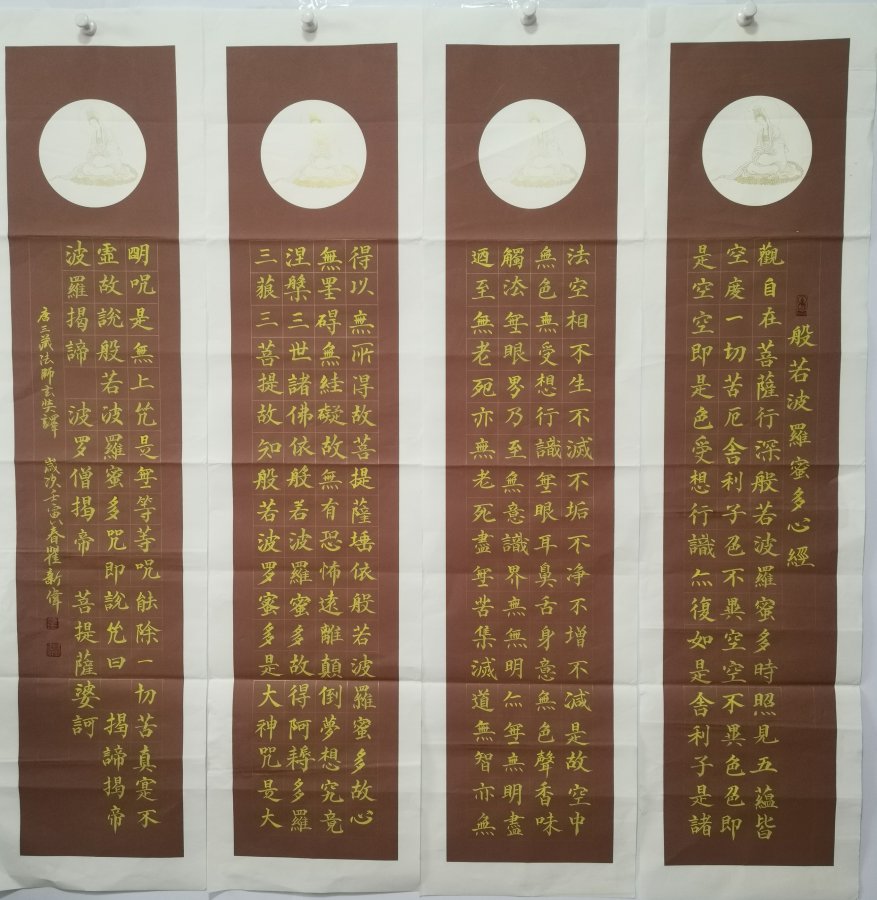 般若波羅蜜多心經
觀自在菩薩行深般若波羅蜜多時照見五蘊皆
空度一切苦厄舍利子色不異空空不異色色即
是空空即是色受想行識亦復如是舍利子是諸
法空相不生不滅不垢不净不增不減是故空中
無色無受想行識無眼耳鼻舌身意無色聲香味
觸法無眼界乃至無意識界無無明亦無無明盡
迺至無老死亦無老死盡無苦集滅道無智亦無
得以無所得故菩提薩埵依般若波羅蜜多故心
無罣碍無絓礙故無有恐怖遠離顛倒夢想究竟
涅槃三世諸佛依般若波羅蜜多故得阿耨多羅
三藐三菩提故知般若波罗蜜多是大神咒是大
明呪是無上咒是無等等呪能除一切苦真寔不
虛故說般若波羅蜜多咒即說咒曰 揭諦揭帝
波羅揭諦 波罗僧揭帝 菩提薩婆訶
唐三藏法師玄奘譯 歲次壬寅春瞿新偉